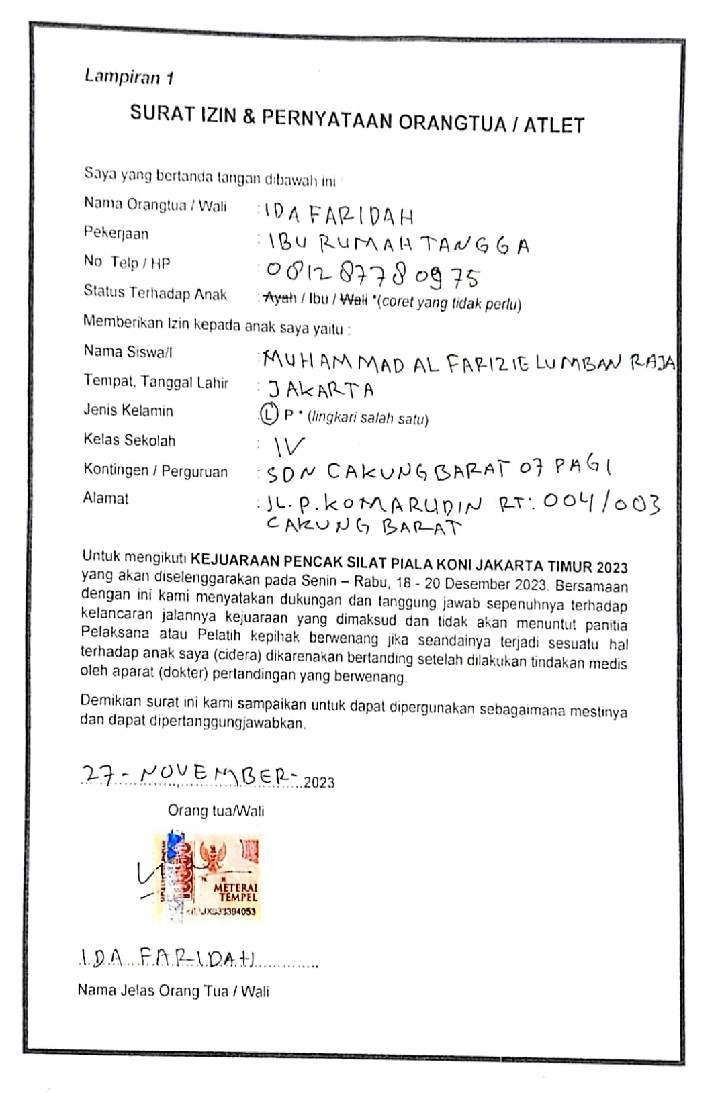 Lampiran 1
SURAT IZIN & PERNYATAAN ORANGTUA / ATLET
Saya yang bertanda tangan dibawah ini :
Nama Orangtua / Wali : IDA FARIDAH
Pekerjaan : IBU RUMAH TANGGA
No. Telp / HP : 081287780975
Status Terhadap Anak : Ayah / Ibu / Wali *(coret yang tidak perlu)
Memberikan Izin kepada anak saya yaitu :
Nama Siswa/I : MUHAMMAD AL FARIZIE LUMBAN RAJA
Tempat, Tanggal Lahir : JAKARTA
Jenis Kelamin : L P * (lingkari salah satu)
Kelas Sekolah : IV
Kontingen / Perguruan : SDN CAKUNG BARAT 07 PAGI
Alamat : JL. P. KOMARUDIN RT. 004/003
CAKUNG BARAT
Untuk mengikuti KEJUARAAN PENCAK SILAT PIALA KONI JAKARTA TIMUR 2023
yang akan diselenggarakan pada Senin – Rabu, 18 - 20 Desember 2023. Bersamaan
dengan ini kami menyatakan dukungan dan tanggung jawab sepenuhnya terhadap
kelancaran jalannya kejuaraan yang dimaksud dan tidak akan menuntut panitia
Pelaksana atau Pelatih kepihak berwenang jika seandainya terjadi sesuatu hal
terhadap anak saya (cidera) dikarenakan bertanding setelah dilakukan tindakan medis
oleh aparat (dokter) pertandingan yang berwenang.
Demikian surat ini kami sampaikan untuk dapat dipergunakan sebagaimana mestinya
dan dapat dipertanggungjawabkan.
27 - NOVEMBER - 2023
Orang tua/Wali
10000
METERAI
TEMPEL
IDA FARIDAH
Nama Jelas Orang Tua / Wali